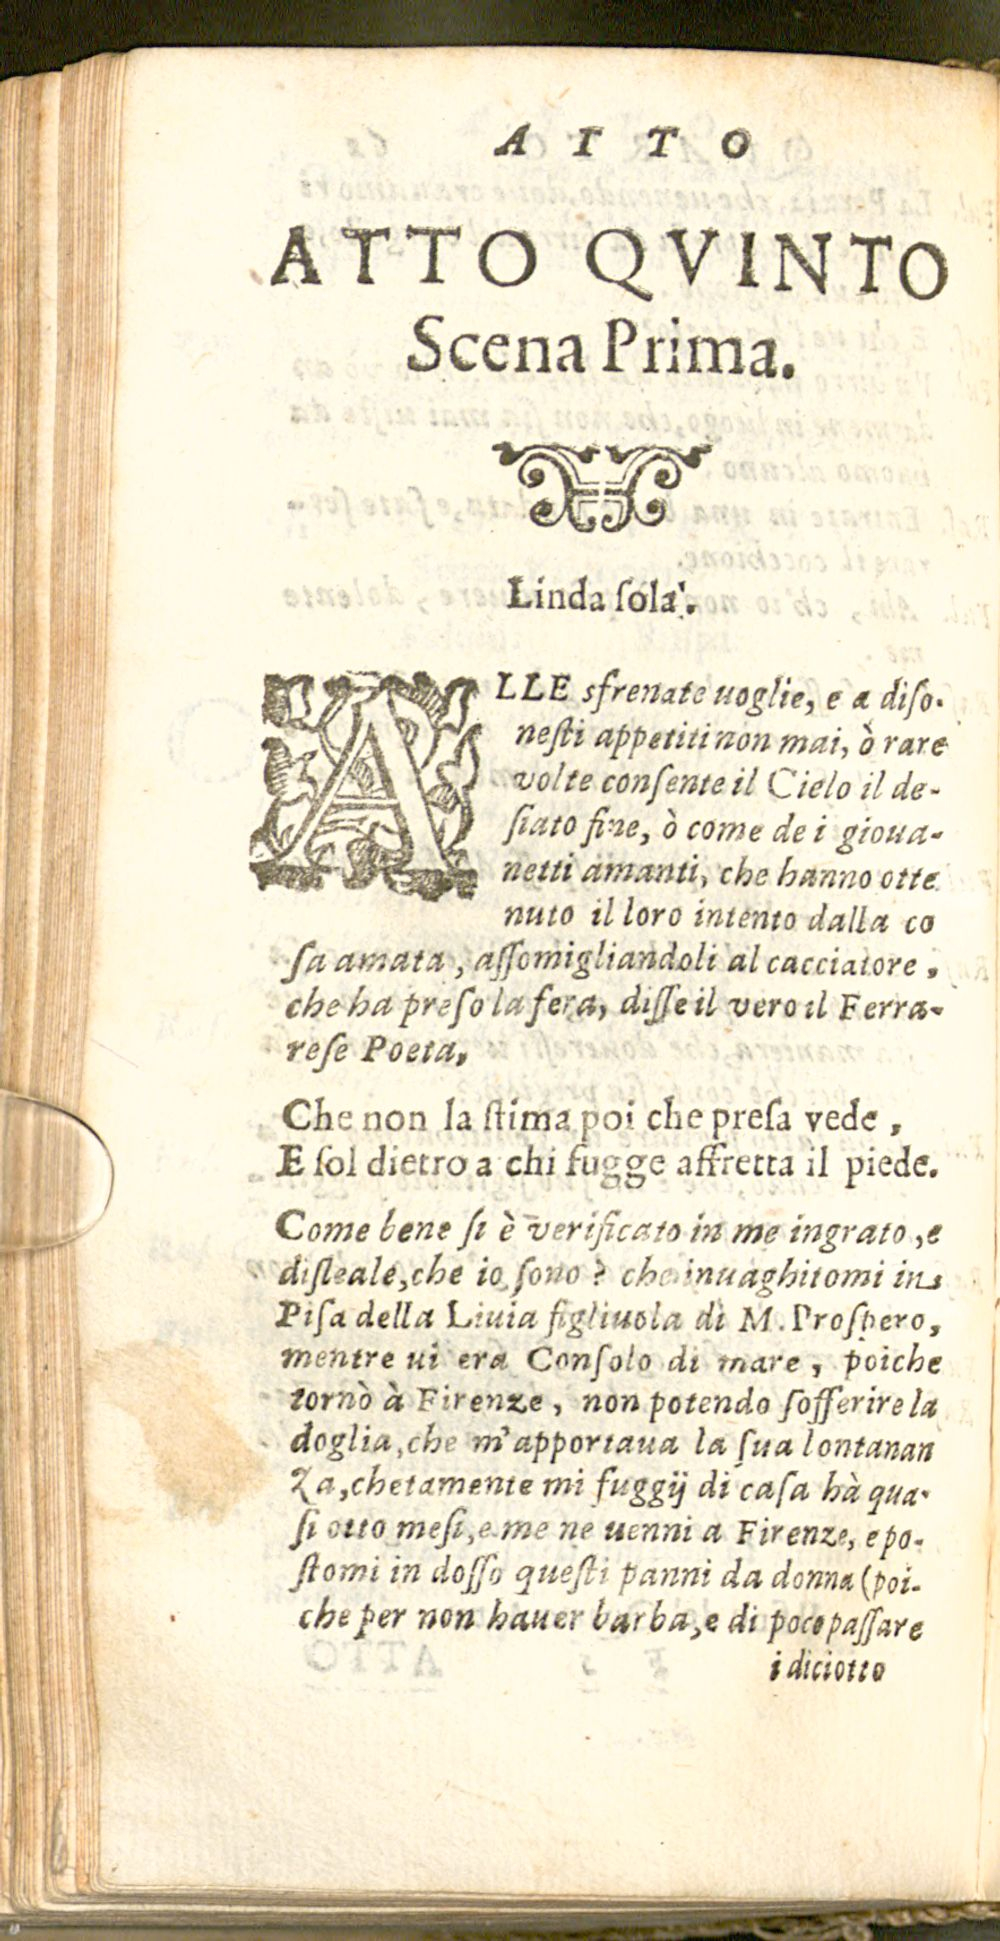 ATTO
ATTO QVINTO
Scena Prima.
Linda ſola.
ALLE sfrenate uoglie, e a diſo-
neſti appetiti non mai, ò rare
volte conſente il Cielo il de-
ſiato fine, ò come de i gioua-
netti amanti, che hanno otte
nuto il loro intento dalla co
ſa amata, aſſomigliandoli al cacciatore,
che ha preſo la fera, diſſe il vero il Ferra-
reſe Poeta.
Che non la ſtima poi che preſa vede,
E ſol dietro a chi fugge affretta il piede.
Come bene ſi è verificato in me ingrato, e
diſleale, che io ſono? che inuaghitomi in
Piſa della Liuia figliuola di M. Proſpero,
mentre ui era Conſolo di mare, poiche
tornò à Firenze, non potendo ſofferire la
doglia, che m'apportaua la ſua lontanan
za, chetamente mi fuggij di caſa hà qua-
ſi otto meſi, e me ne uenni a Firenze, e po-
ſtomi in doſſo queſti panni da donna (poi-
che per non hauer barba, e di poco paſſare
i diciotto